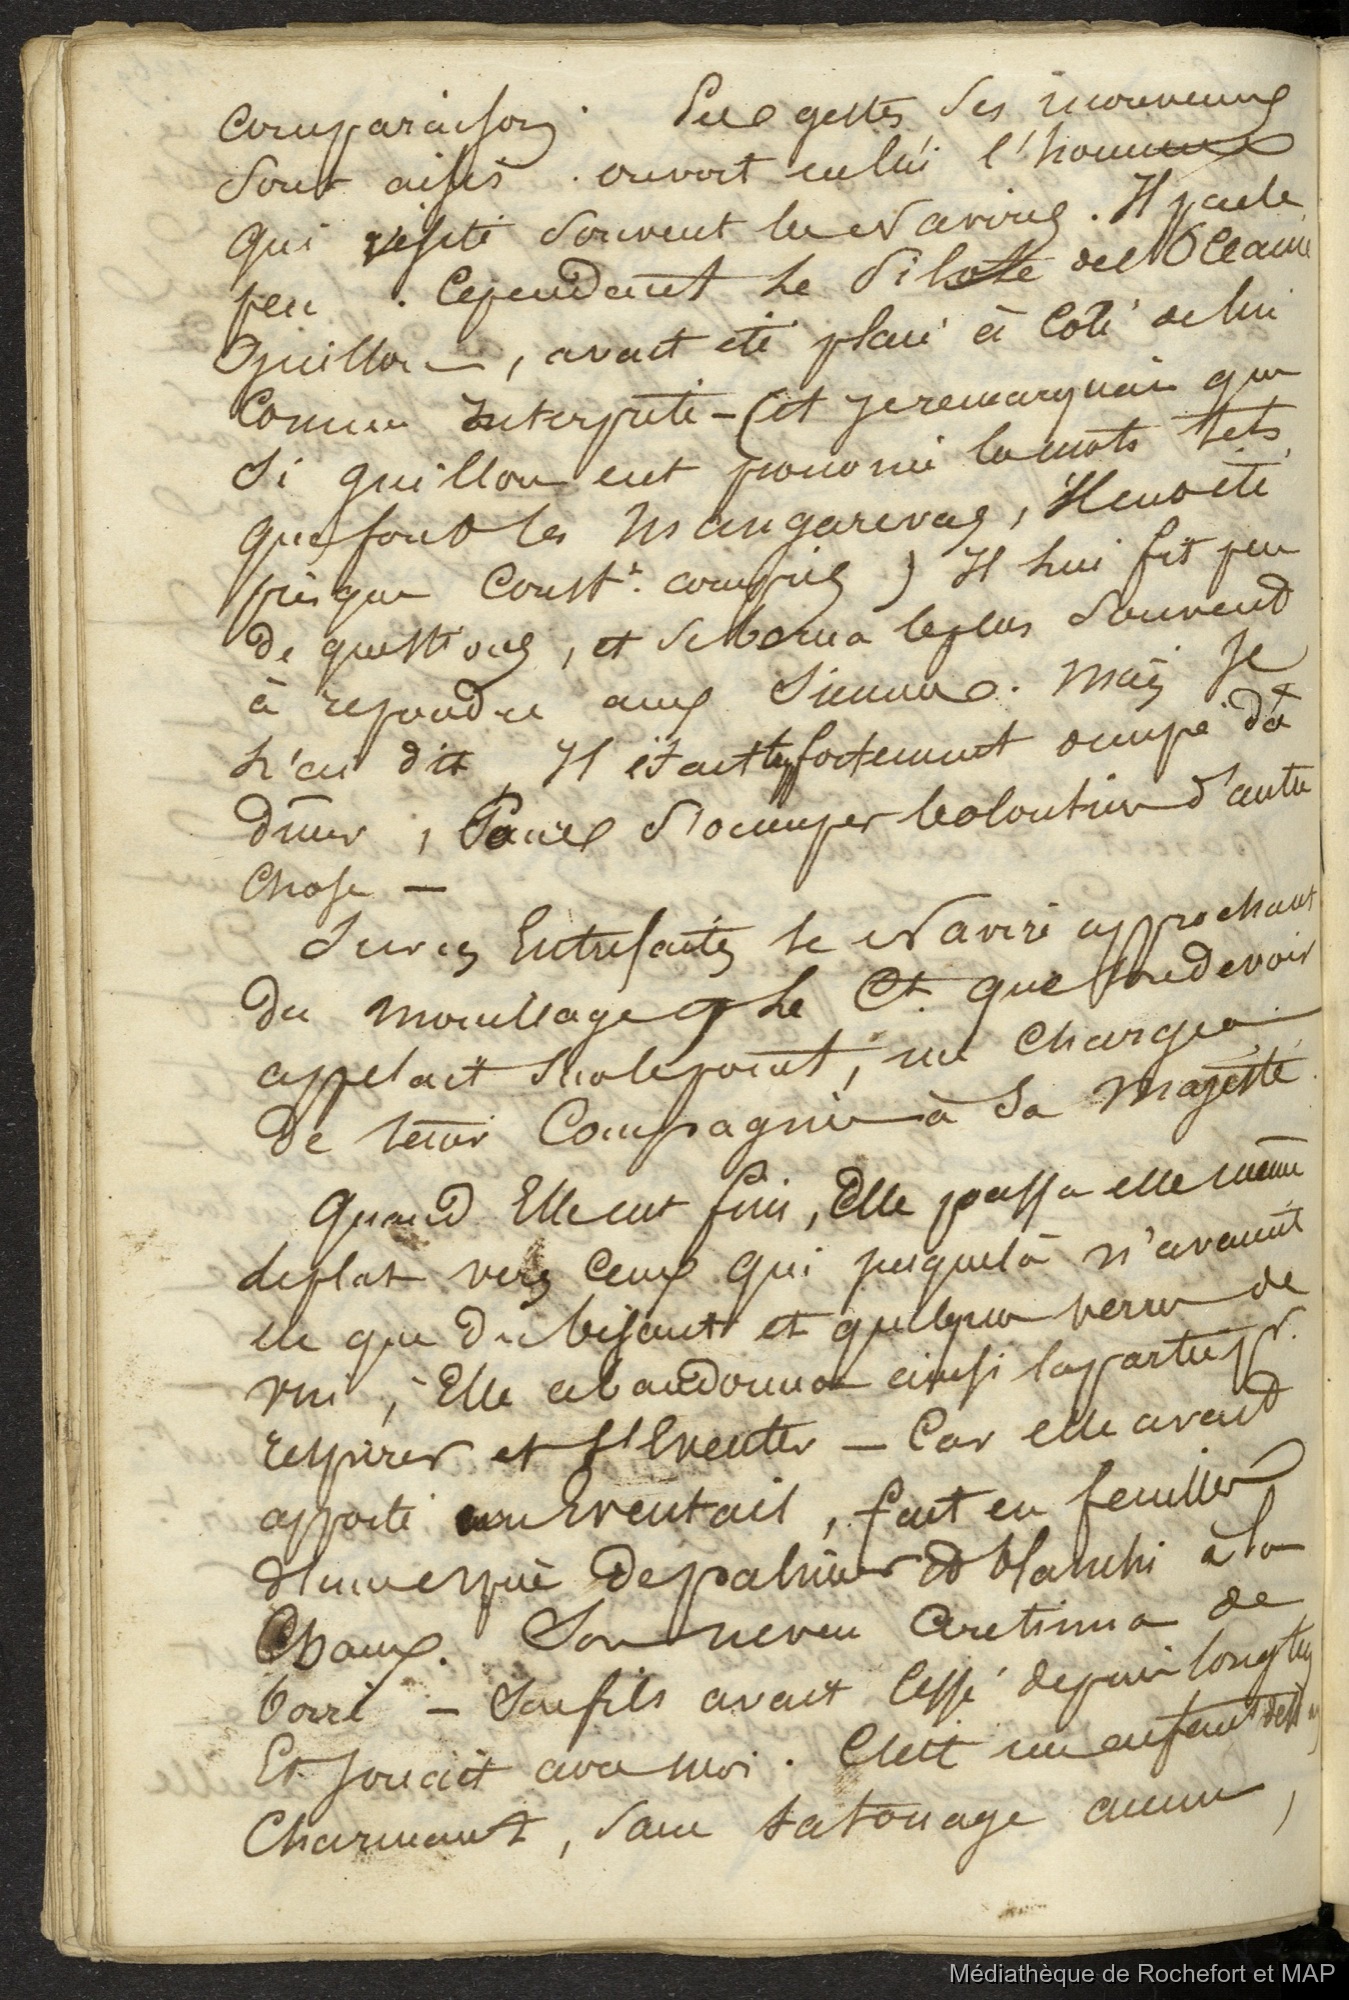 Comparaison. Ses gestes ses mouvemens
sont aisés. on voit en lui l'homme
qui visite souvent les Navires. Il parle
peu. Cependant le Pilote de l'Océanie
Guillou, avait été placé à côté de lui
Comme interprète – (et je remarquai que
si Guillou eut prononcé les mots tels
que font les Mangarevas, Il eut été
presque Constt. compris) Il lui fit peu
de questions, et se borna le plus souvent
à repondre aux siennes. Mais je
l'ai dit, Il était trop fortement occupé du
diner, Pour s'occuper volontiers d'autre
Chose –
Sur ces Entrefaites le Navire approchant
du mouillage le Ct. que son devoir
appelait sur le pont, me Chargea
de tenir Compagnie à Sa Majesté
Quand Elle eut fini, Elle passa elle même
le plat vers Ceux qui jusque là n'avaient
eu que du biscuit et quelques verres de
vin, Elle abandonna ainsi la partie pr.
respirer et s'Eventer – Car elle avait
apporté un Eventail, fait en feuilles
d'une espèce de palmier et blanchi à la
Chaux. Son neveu Aretinua de
– Son fils avait Cessé depuis longtems
Et jouait avec moi. C'est un enfant
Charmant, sans tatouage aucun,
Médiathèque de Rochefort et MAP